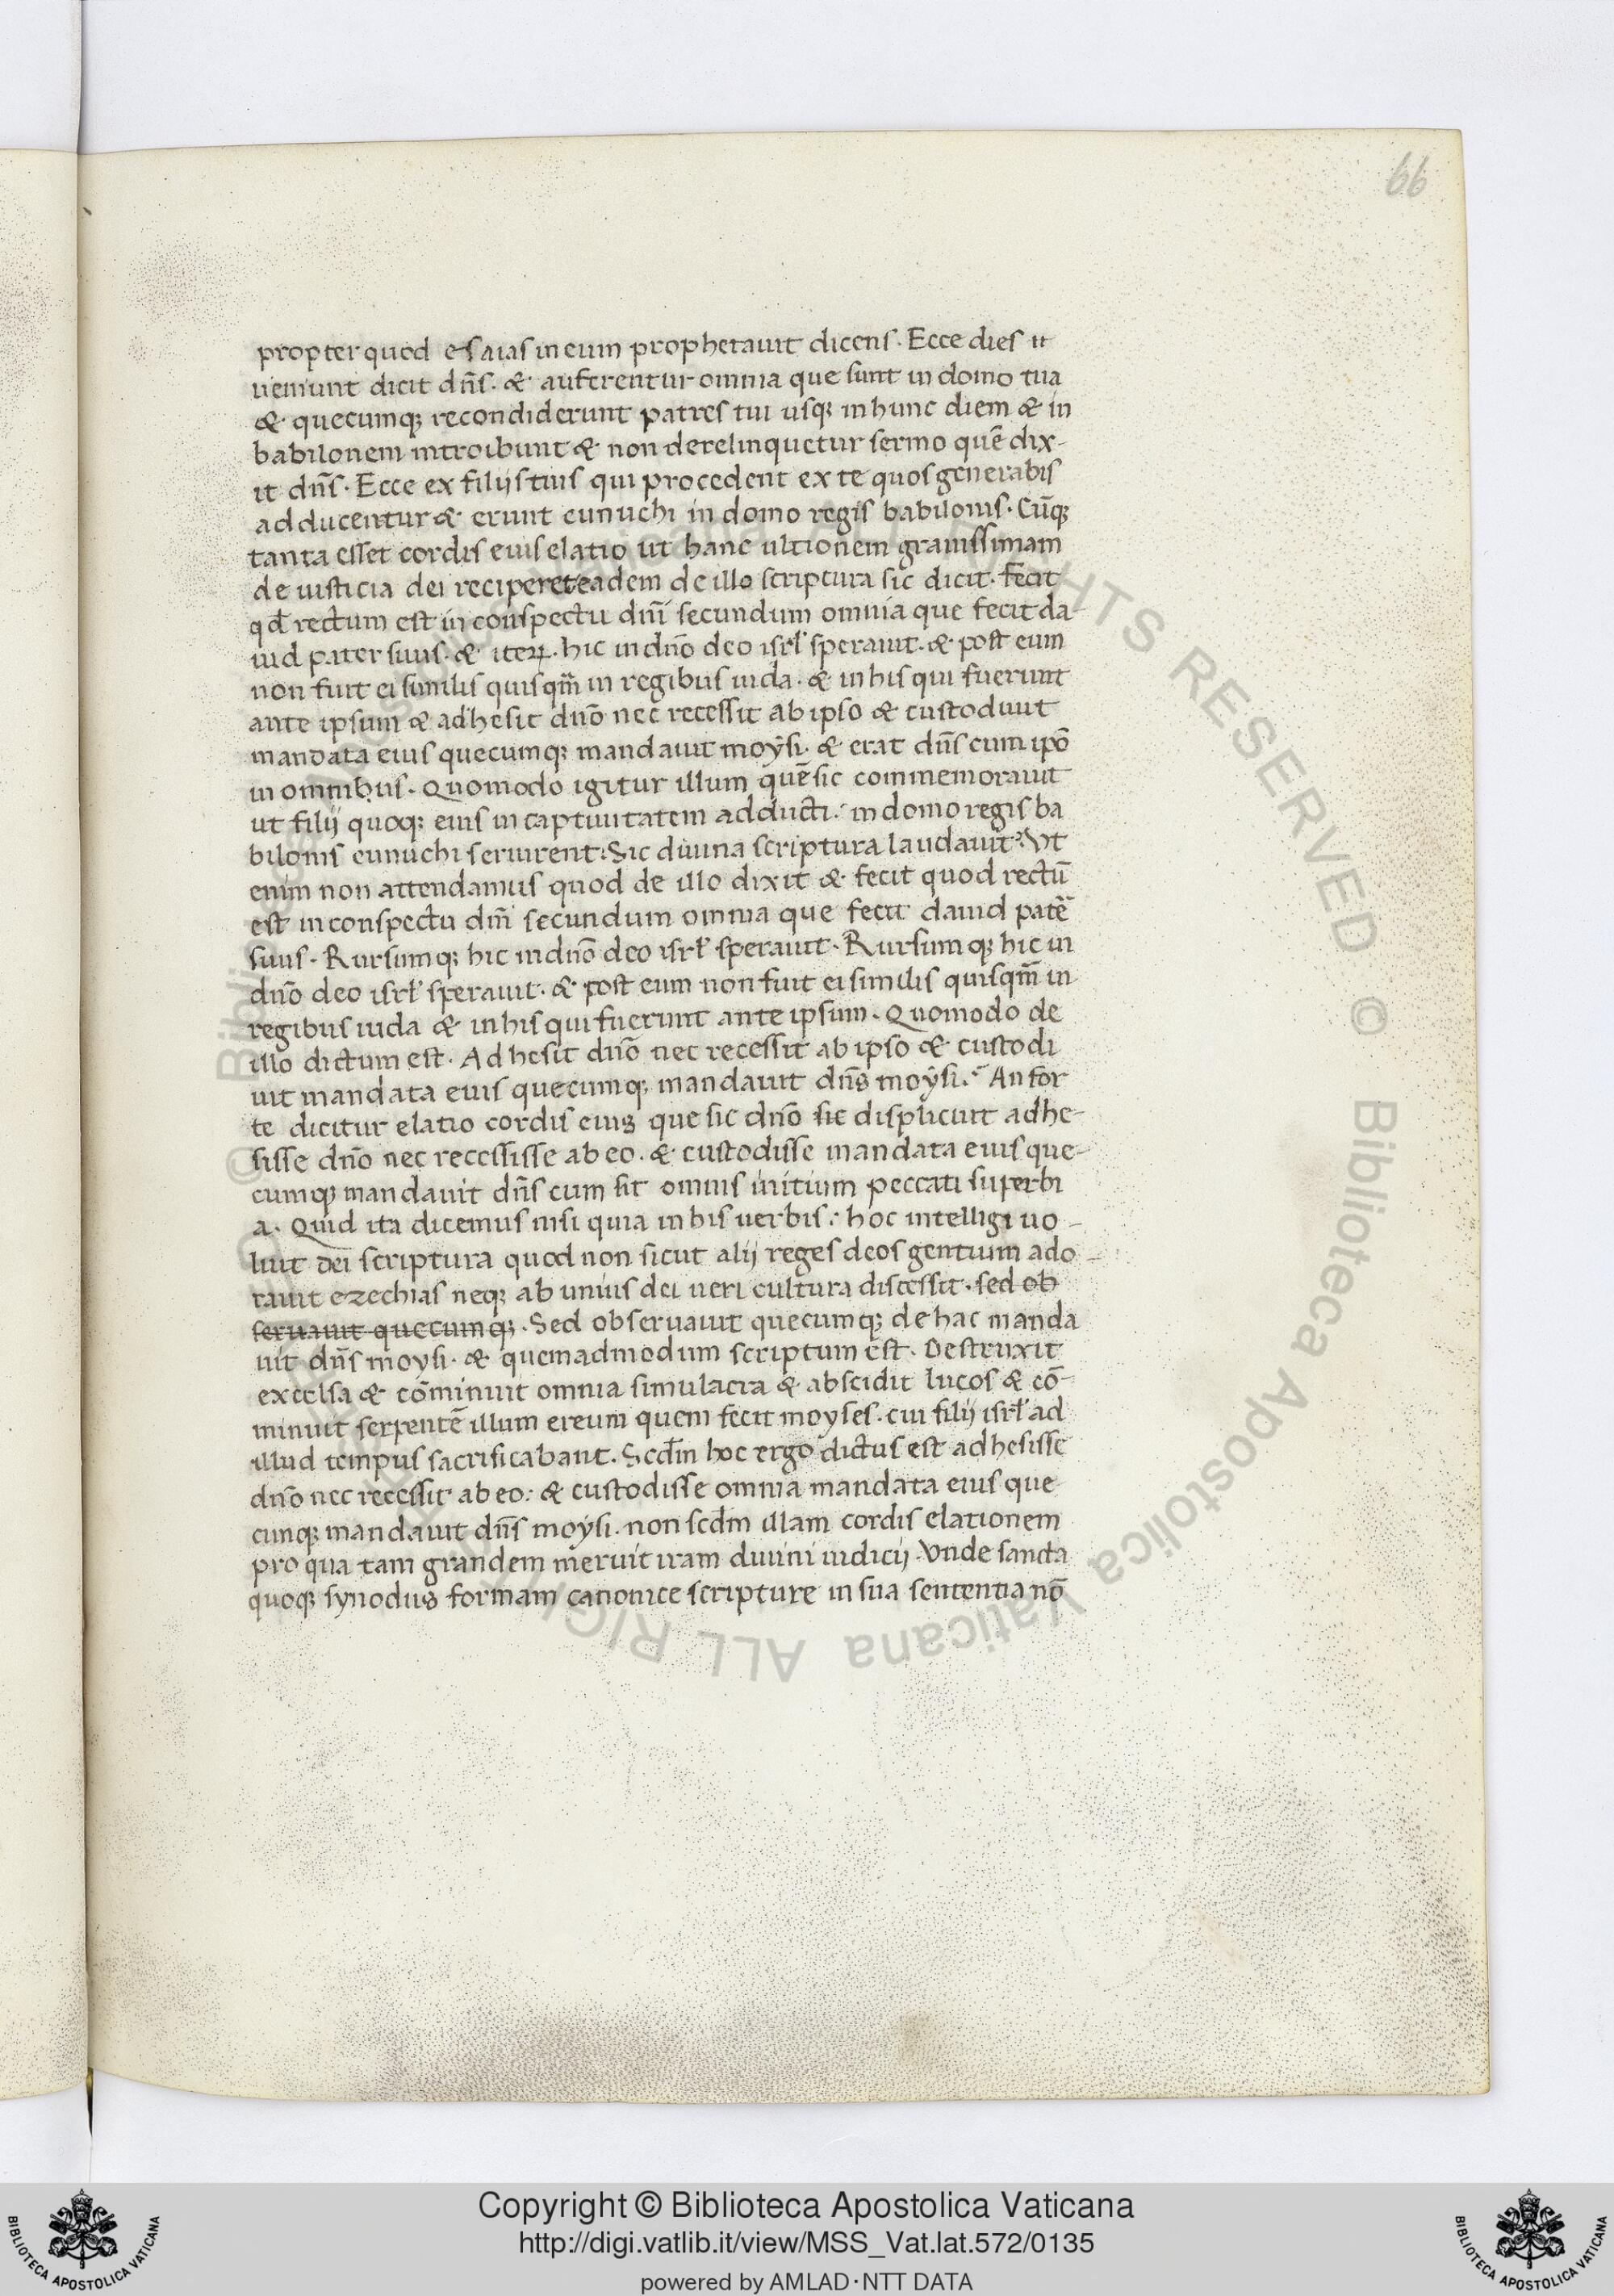 66
propter quod esaias in eum prophetauit dicens. Ecce dies
ueniunt dicit dñs. & auferentur omnia que sunt in domo tua
& quecumq; recondiderunt patres tui usq; in hunc diem & in
babilonem introibunt & non derelinquetur sermo quē dix-
it dñs. Ecce ex filijs tuis qui procedent ex te quos generabis
adducentur & erunt eunuchi in domo regis babilonis. Cūq;
tanta esset cordis eius elatio ut hanc ultionem grauissimam
de iusticia dei reciperet eadem de illo scriptura sic dicit. fecit
qđ rectum est in conspectu dñi secundum omnia que fecit da-
uid pater suus. & iteꝝ. hic in dño deo isrł sperauit. & post eum
non fuit ei similis quisqm̄ in regibus iuda. & in his qui fuerunt
ante ipsum & adhesit dño nec recessit ab ipso & custodiuit
mandata eius quecumq; mandauit moysi. & erat dñs cum ipō
in omnibus. Quomodo igitur illum quē sic commemorauit
ut filij quoq; eius in captiuitatem adducti. in domo regis ba
bilonis eunuchi seruirent: Sic diuina scriptura laudauit? Vt
enim non attendamus quod de illo dixit & fecit quod rectū
est in conspectu dñi secundum omnia que fecit dauid patē
suus. Rursumq; hic in dño deo isrł sperauit. Rursumq; hic in
dño deo isrł sperauit. & post eum non fuit ei similis quisqm̄ in
regibus iuda & in his qui fuerunt ante ipsum. Quomodo de
illo dictum est. Adhesit dño nec recessit ab ipso & custodi
uit mandata eius quecumq; mandauit dñs moysi. An for
te dicitur elatio cordis eius que sic dño sic displicuit adhe-
sisse dño nec recessisse ab eo. & custodisse mandata eius que-
cumq; mandauit dñs cum sit omnis initium peccati superbi
a. Quid ita dicemus nisi quia in his uerbis: hoc intelligi uo-
luit dei scriptura quod non sicut alij reges deos gentium ado-
rauit ezechias neq; ab unius dei ueri cultura discessit. sed ob
seruauit quecumq;. Sed obseruauit quecumq; de hac manda
uit dñs moysi. & quemadmodum scriptum est. Destruxit
excelsa & cōminuit omnia simulacra & abscidit lucos & cō-
minuit serpentē illum ereum quem fecit moyses. cui filij isrł ad
illud tempus sacrificabant. Scdm̄ hoc ergo dictus est adhesisse
dño nec recessit ab eo: & custodisse omnia mandata eius que
cunq; mandauit dñs moysi. non scdm̄ illam cordis elationem
pro qua tam grandem meruit iram diuini iudicij. Vnde sancta
quoq; synodus formam canonice scripture in sua sententia nō
© Biblioteca Apostolica Vaticana ALL RIGHTS RESERVED
Copyright © Biblioteca Apostolica Vaticana
http://digi.vatlib.it/view/MSS_Vat.lat.572/0135
powered by AMLAD·NTT DATA
BIBLIOTECA APOSTOLICA VATICANA
BIBLIOTECA APOSTOLICA VATICANA